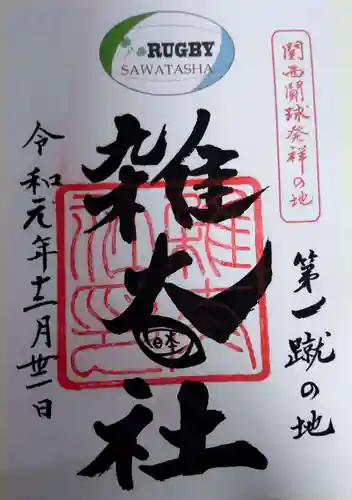 RUGBY
SAWATASHA
関西闘球発祥の地
第一蹴の地
雑太社
日本
令和元年十二月卅一日